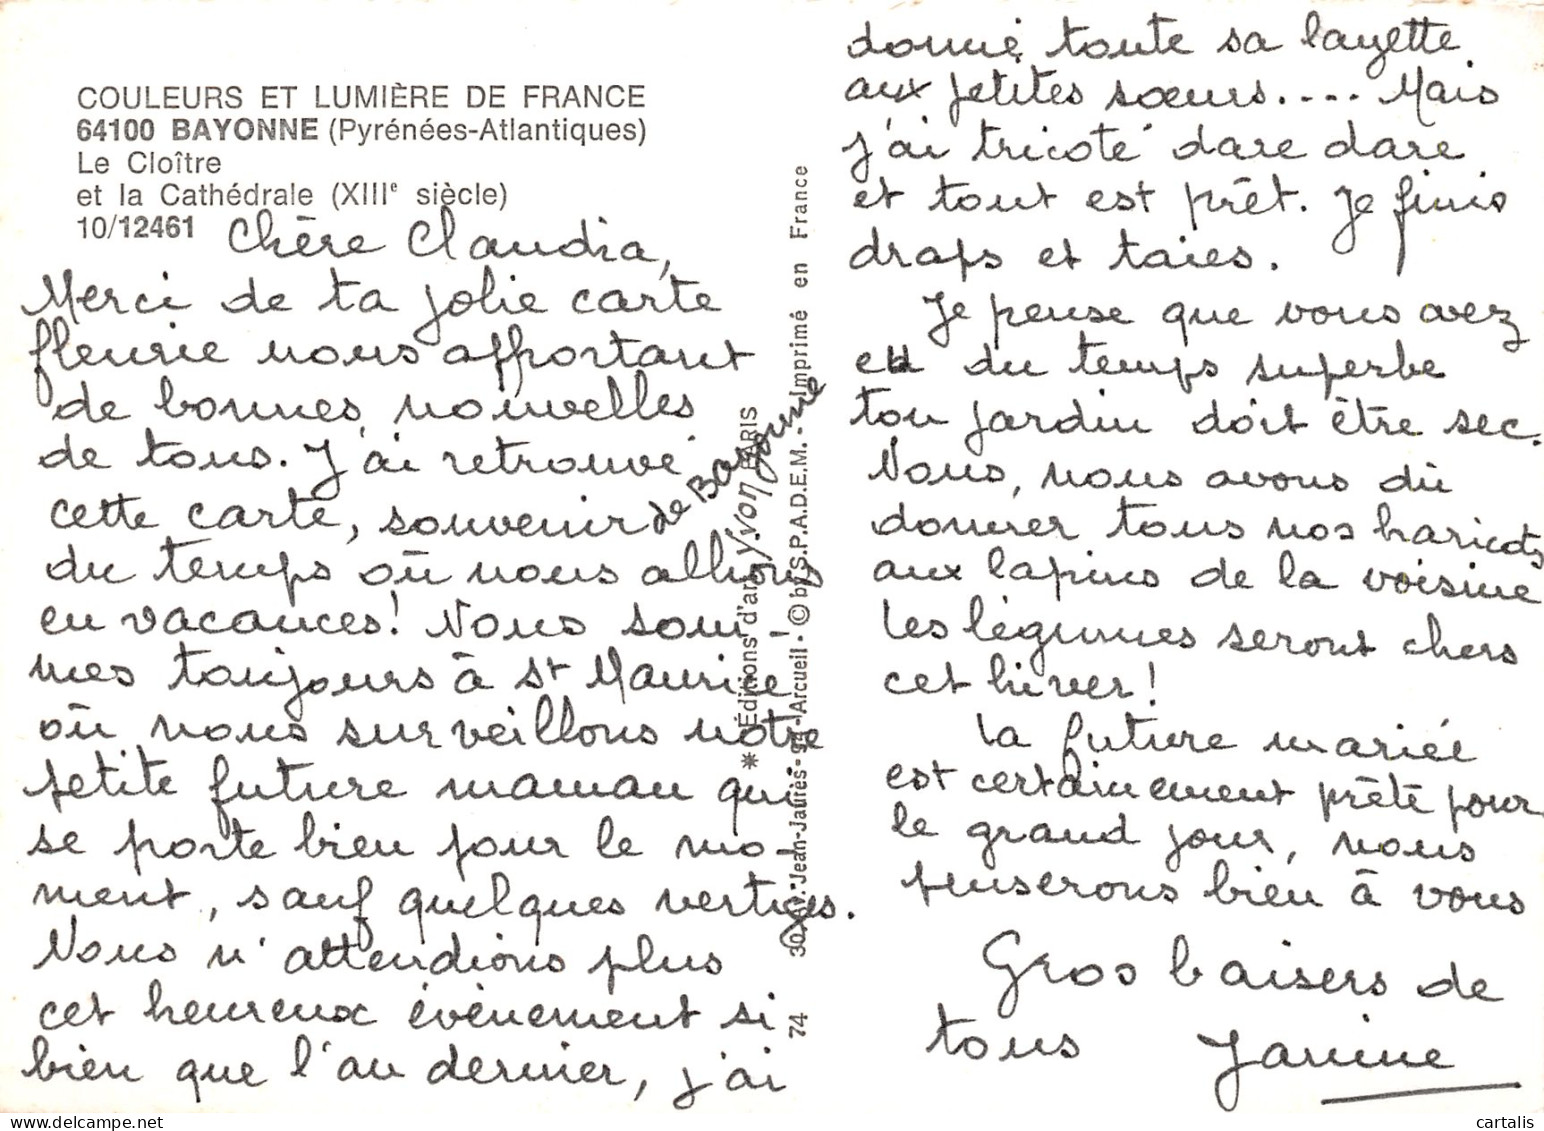 COULEURS ET LUMIÈRE DE FRANCE
64100 BAYONNE (Pyrénées-Atlantiques)
Le Cloître
et la Cathédrale (XIIIe siècle)
10/12461
Chère Claudia,
Merci de ta jolie carte
fleurie nous apportant
de bonnes nouvelles
de tous. J'ai retrouvé
cette carte, souvenir de Bayonne
du temps où nous allions
en vacances! Nous som-
mes toujours à St Maurice
où nous surveillons notre
petite future maman qui
se porte bien pour le mo-
ment, sauf quelques vertiges.
Nous n'attendions plus
cet heureux évènement si
bien que l'an dernier, j'ai
donné toute sa layette
aux petites sœurs.... Mais
j'ai tricoté dare dare
et tout est prêt. Je finis
draps et taies.
Je pense que vous avez
eu du temps superbe
ton jardin doit être sec.
Nous, nous avons dû
donner tous nos haricots
aux lapins de la voisine
Les légumes seront chers
cet hiver!
La future mariée
est certainement prête pour
le grand jour, nous
penserons bien à vous
Gros baisers de
tous Janine
✳ Éditions d'art Yvon PARIS
74 30, Jean-Jaurès - 94 - Arcueil - © by S.P.A.D.E.M. - Imprimé en France
cartalis.com